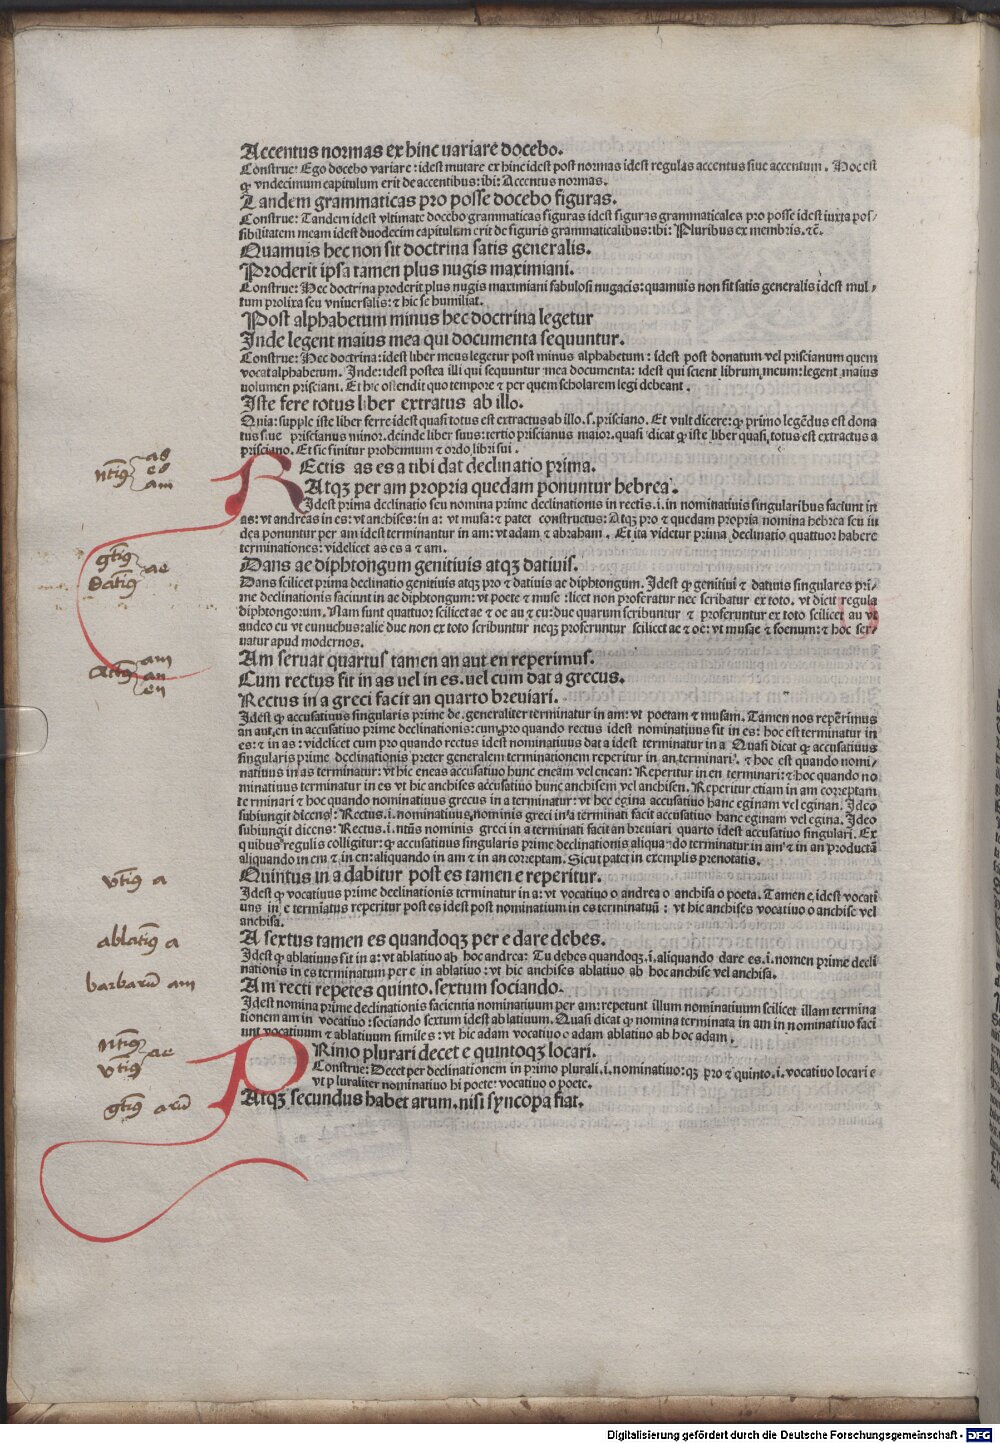 Accentus normas ex hinc uariare docebo.
Construe: Ego docebo variare: idest mutare ex hinc idest post normas idest regulas accentus siue accentum. Hoc est
ꝙ vndecimum capitulum erit de accentibus: ibi: Accentus normas.
Tandem grammaticas pro posse docebo figuras.
Construe: Tandem idest vltimate docebo grammaticas figuras idest figuras grammaticales pro posse idest iuxta pos-
sibilitatem meam idest duodecim capitulum erit de figuris grammaticalibus: ibi: Pluribus ex membris. ⁊c̄.
Quamuis hec non sit doctrina satis generalis.
Proderit ipsa tamen plus nugis maximiani.
Construe: Hec doctrina proderit plus nugis maximiani fabulosi nugacis: quamuis non sit satis generalis idest mul-
tum prolixa seu vniuersalis: ⁊ hic se humiliat.
Post alphabetum minus hec doctrina legetur
Inde legent maius mea qui documenta sequuntur.
Construe: Hec doctrina: idest liber meus legetur post minus alphabetum: idest post donatum vel priscianum quem
vocat alphabetum. Inde: idest postea illi qui sequuntur mea documenta: idest qui scient librum meum: legent maius
uolumen prisciani. Et hic ostendit quo tempore ⁊ per quem scholarem legi debeant.
Iste fere totus liber extratus ab illo.
Quia: supple iste liber ferre idest quasi totus est extractus ab illo. s. prisciano. Et vult dicere: ꝙ primo legēdus est dona
tus siue priscianus minor. deinde liber suus: tertio priscianus maior. quasi dicat ꝙ iste liber quasi totus est extractus a
prisciano. Et sic finitur prohemium ⁊ ordo libri sui.
Rectis as es a tibi dat declinatio prima.
Atqꝫ per am propria quedam ponuntur hebrea.
Idest prima declinatio seu nomina prime declinationis in rectis. i. in nominatiuis singularibus faciunt in
as: vt andreas in es: vt anchises: in a: vt musa: ⁊ patet constructus: Atqꝫ pro ⁊ quedam propria nomina hebrea seu iu
dea ponuntur per am idest terminantur in am: vt adam ⁊ abraham. Et ita videtur prima declinatio quattuor habere
terminationes: videlicet as es a ⁊ am.
Dans ae diphtongum genitiuis atqꝫ datiuis.
Dans scilicet prima declinatio genitiuis atqꝫ pro ⁊ datiuis ae diphtongum. Idest ꝙ genitiui ⁊ datiuis singulares pri-
me declinationis faciunt in ae diphtongum: vt poete ⁊ muse: licet non proferatur nec scribatur ex toto. vt dicit regula
diphtongorum. Nam sunt quattuor scilicet ae ⁊ oe au ⁊ eu: due quarum scribuntur ⁊ proferuntur ex toto scilicet au vt
audeo eu vt eunuchus: alie due non ex toto scribuntur neqꝫ proferuntur scilicet ae ⁊ oe: vt musae ⁊ foenum: ⁊ hoc ser-
uatur apud modernos.
Am seruat quartus tamen an aut en reperimus.
Cum rectus fit in as uel in es. uel cum dat a grecus.
Rectus in a greci facit an quarto breuiari.
Idest ꝙ accusatiuus singularis prime de. generaliter terminatur in am: vt poetam ⁊ musam. Tamen nos reperimus
an aut en in accusatiuo prime declinationis: cum pro quando rectus idest nominatiuus fit in es: hoc est terminatur in
es: ⁊ in as: videlicet cum pro quando rectus idest nominatiuus dat a idest terminatur in a Quasi dicat ꝙ accusatiuus
singularis prime declinationis preter generalem terminationem reperitur in an terminari. ⁊ hoc est quando nomi-
natiuus in as terminatur: vt hic eneas accusatiuo hunc eneam vel encan: Reperitur in en terminari: ⁊ hoc quando no
minatiuus terminatur in es vt hic anchises accusatiuo hunc anchisem vel anchisen. Reperitur etiam in am correptam
terminari ⁊ hoc quando nominatiuus grecus in a terminatur: vt hec egina accusatiuo hanc eginam vel eginan. Ideo
subiungit dicens: Rectus. i. nominatiuus nominis greci in a terminati facit accusatiuo hanc eginam vel egina. Ideo
subiungit dicens: Rectus. i. ntūs nominis greci in a terminati facit an breuiari quarto idest accusatiuo singulari. Ex
quibus regulis colligitur: ꝙ accusatiuus singularis prime declinationis aliquando terminatur in am ⁊ in an productā
aliquando in em ⁊ in en: aliquando in am ⁊ in an correptam. Sicut patet in exemplis prenotatis.
Quintus in a dabitur post es tamen e reperitur.
Idest ꝙ vocatiuus prime declinationis terminatur in a: vt vocatiuo o andrea o anchisa o poeta. Tamen e, idest vocati
uus in e termiatus reperitur post es idest post nominatium in es terminatuū: vt hic anchises vocatiuo o anchise vel
anchisa.
A sextus tamen es quandoqꝫ per e dare debes.
Idest ꝙ ablatiuus fit in a: vt ablatiuo ab hoc andrea: Tu debes quandoqꝫ. i. aliquando dare es. i. nomen prime decli
nationis in es terminatum per e in ablatiuo: vt hic anchises ablatiuo ab hoc anchise vel anchisa.
Am recti repetes quinto. sextum sociando.
Idest nomina prime declinationis facientia nominatiuum per am: repetunt illum nominatiuum scilicet illam termina
tionem am in vocatiuo: sociando sextum idest ablatiuum. Quasi dicat ꝙ nomina terminata in am in nominatiuo faci
unt vocatiuum ⁊ ablatiuum similes: vt hic adam vocatiuo o adam ablatiuo ab hoc adam.
Primo plurari decet e quintoqꝫ locari.
Construe: Decet per declinationem in primo plurali. i. nominatiuo: qꝫ pro ⁊ quinto. i. vocatiuo locari e
vt pluraliter nominatiuo hi poete: vocatiuo o poete.
Atqꝫ secundus habet arum. nisi syncopa fiat.
ntiꝰ as
es
am
gtiꝰ
datiꝰ ae
actiꝰ am
an
en
vtiꝰ a
ablatiꝰ a
barbarū am
ntiꝰ
vtiꝰ ae
gtiꝰ arū
Digitalisierung gefördert durch die Deutsche Forschungsgemeinschaft - DFG